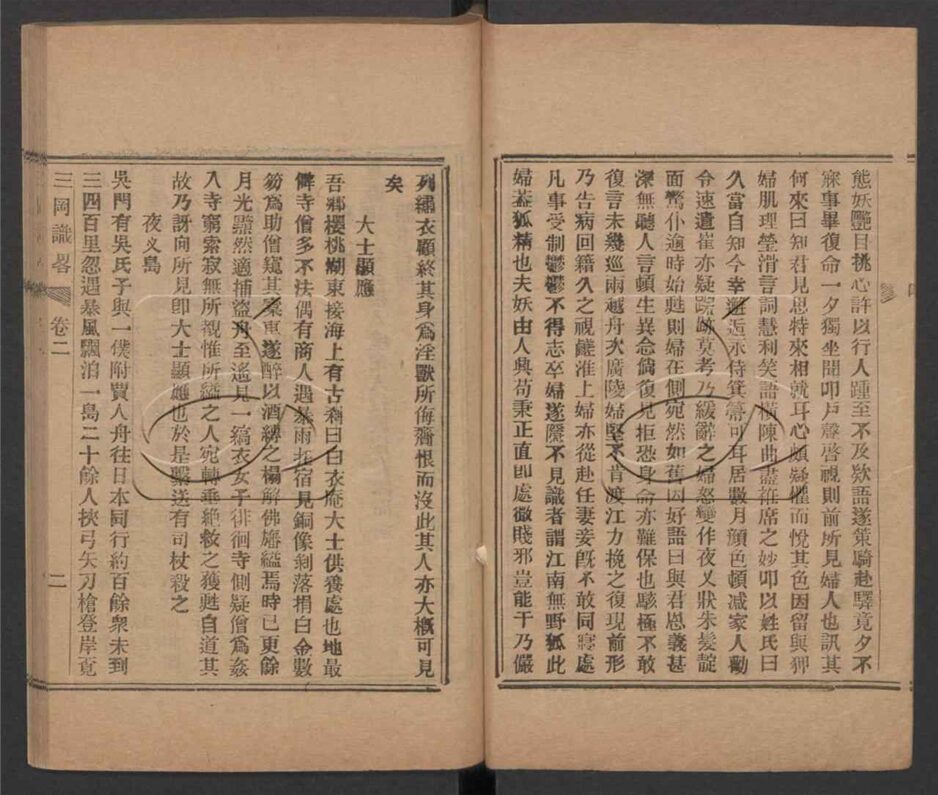 態妖豔目挑心許以行人踵至不及欵語遂策騎赴驛竟夕不
寐事畢復命一夕獨坐聞叩戶聲啓視則前所見婦人也訊其
何來曰知君見思特來相就耳心頗疑懼而悅其色因留與狎
婦肌理瑩滑言詞慧利笑語橫陳曲盡袵席之妙叩以姓氏曰
久當自知今幸邂逅永侍箕箒可耳居數月顏色頓減家人勸
令速遣崔亦疑踪跡莫考乃緩辭之婦怒變作夜叉狀朱髮靛
面驚仆逾時始甦則婦在側宛然如舊因好語曰與君恩義甚
深無聽人言頓生異念倘復見拒恐身命亦難保也駭極不敢
復言未幾巡兩越舟次廣陵婦堅不肯渡江力挽之復現前形
乃告病回籍久之視鹺淮上婦亦從赴任妻妾旣不敢同寢處
凡事受制鬱鬱不得志卒婦遂隱不見識者謂江南無野狐此
婦蓋狐精也夫妖由人興苟秉正直即處微賤邪豈能干乃儼
列繡衣顧終其身爲淫獸所侮齎恨而沒此其人亦大槪可見
矣
大士顯應
吾鄉櫻桃湖東接海上有古刹曰白衣庵大士供養處也地最
僻寺僧多不法偶有商人遇暴雨投宿見銅像剝落捐白金數
笏爲助僧窺其橐重遂醉以酒縛之榻解佛旛縊焉時已更餘
月光黯然適捕盜舟至遙見一縞衣女子徘徊寺側疑僧爲姦
入寺窮索寂無所覩惟所縊之人宛轉垂絶救之獲甦自道其
故乃訝向所見即大士顯應也於是繫送有司杖殺之
夜叉島
吳門有吳氏子與一僕附賈人舟往日本同行約百餘衆未到
三四百里忽遇暴風飄泊一島二十餘人挾弓矢刀槍登岸覓
三岡識畧
卷二
二